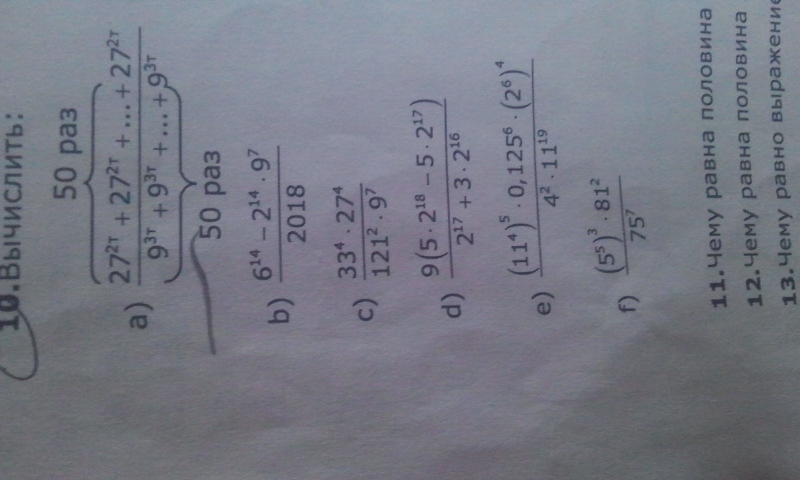 10.Вычислить:
50 раз
a) (27²ᵀ + 27²ᵀ + ... + 27²ᵀ) / (9³ᵀ + 9³ᵀ + ... + 9³ᵀ)
50 раз
b) (6¹⁴ − 2¹⁴ · 9⁷) / 2018
c) (33⁴ · 27⁴) / (121² · 9⁷)
d) 9(5 · 2¹⁸ − 5 · 2¹⁷) / (2¹⁷ + 3 · 2¹⁶)
e) ((11⁴)⁵ · 0,125⁶ · (2⁶)⁴) / (4² · 11¹⁹)
f) ((5⁵)³ · 81²) / 75⁷
11.Чему равна половина
12.Чему равна половина
13.Чему равно выражение